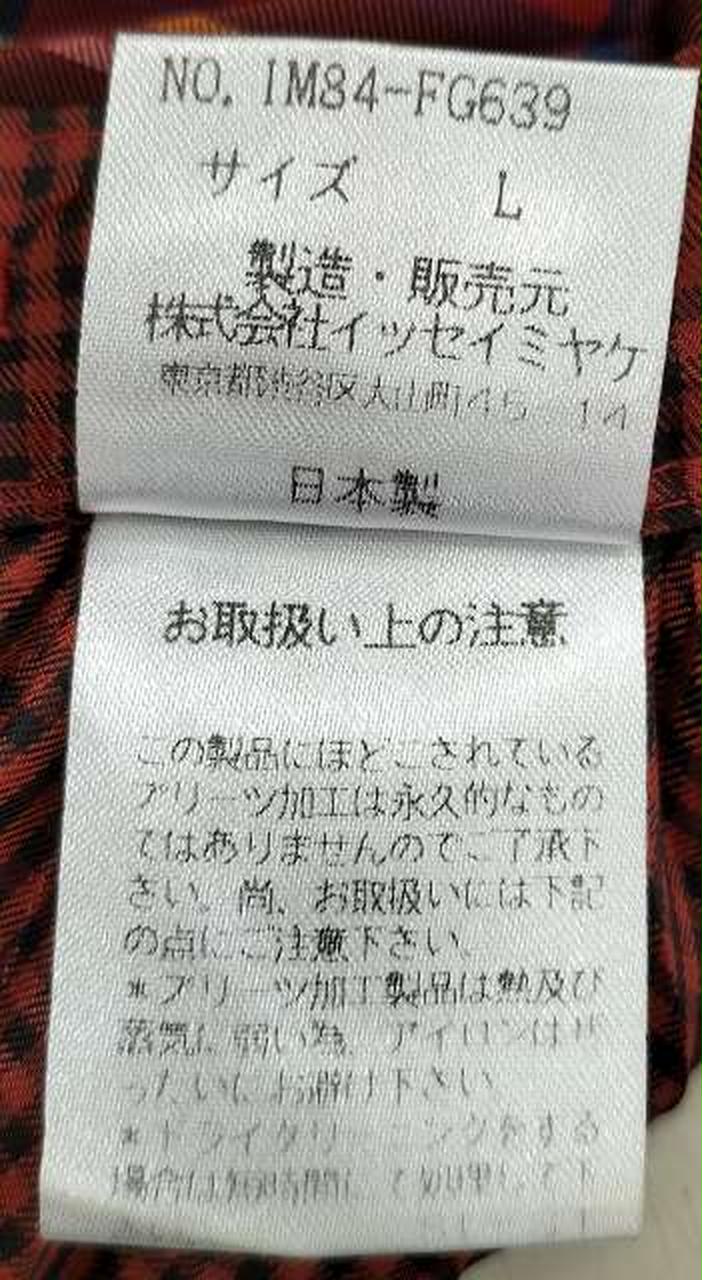 NO. IM84-FG639
サイズ L
製造・販売元
株式会社イッセイミヤケ
東京都渋谷区大山町45 14
日本製
お取扱い上の注意
この製品にほどこされている
プリーツ加工は永久的なもの
ではありませんのでご了承下
さい。尚、お取扱いには下記
の点にご注意下さい。
*プリーツ加工製品は熱及び
蒸気に弱い為、アイロンはぜ
ったいにお避け下さい
*ドライクリーニングをする
場合は短時間にて処理して下